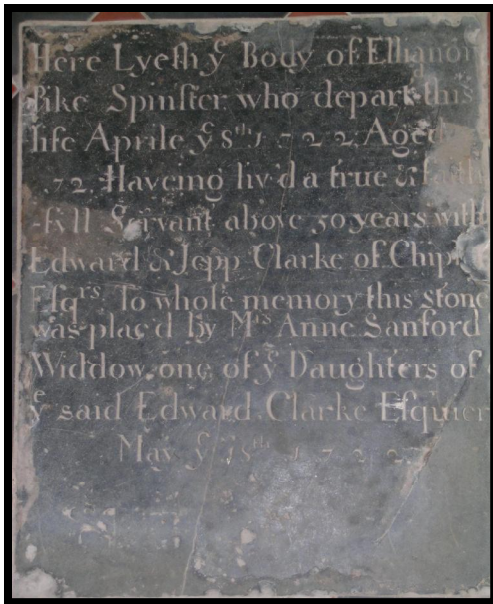 Here Lyeth yͤ Body of Ellianor
Pike Spinſter who depart.this
life Aprile yͤ 8ᵗʰ 1722. Aged
72. Haveing liv'd a true & faith
-full Servant above 50 years with
Edward & Jepp Clarke of Chip
Eſqʳˢ. To whoſe memory this stone
was plac'd by Mʳˢ Anne Sanford
Widdow. one of yͤ Daughters of
yͤ said Edward Clarke Eſquier
May yͤ 18ᵗʰ 1722